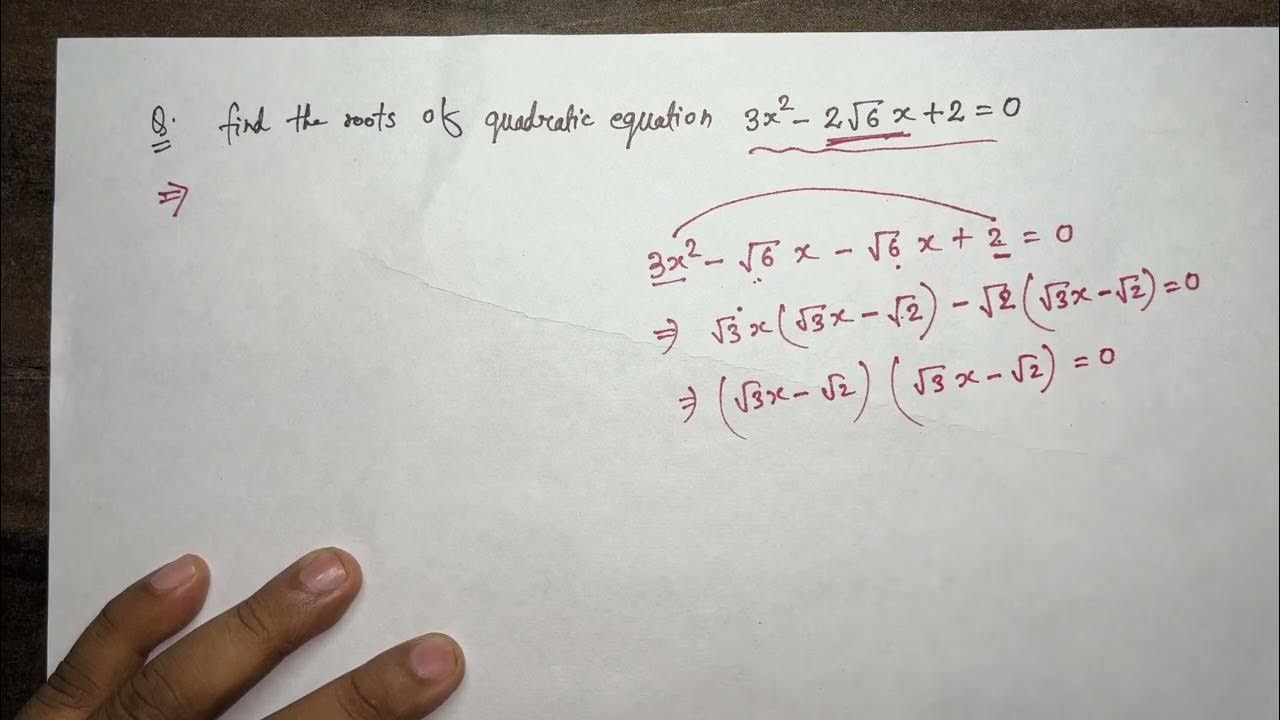 Q. find the roots of quadratic equation 3x² - 2√6 x + 2 = 0
⇒
3x² - √6 x - √6 x + 2 = 0
⇒ √3 x (√3x - √2) - √2 (√3x - √2) = 0
⇒ (√3x - √2) (√3 x - √2) = 0